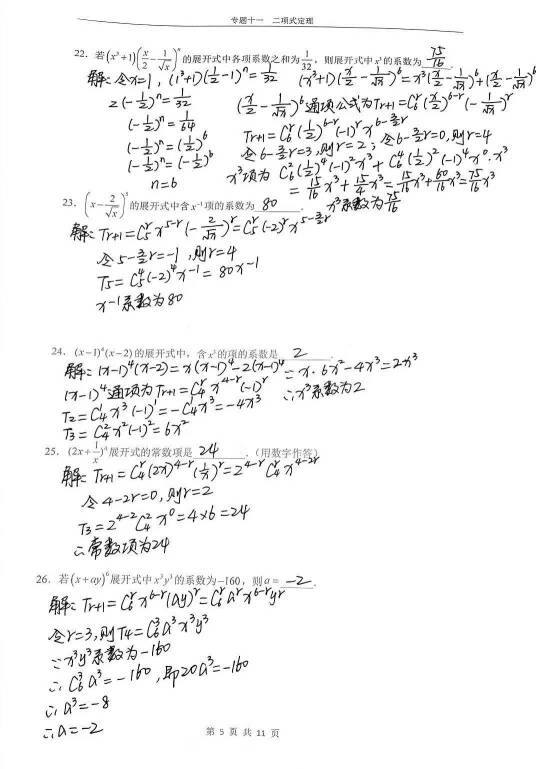 专题十一 二项式定理
22．若(x³+1)(x/2-1/√x)ⁿ的展开式中各项系数之和为1/32，则展开式中x³的系数为 75/16 ．
解：令x=1，(1³+1)(1/2-1)ⁿ=1/32
2(-1/2)ⁿ=1/32
(-1/2)ⁿ=1/64
(-1/2)ⁿ=(1/2)⁶
(-1/2)ⁿ=(-1/2)⁶
n=6
(x³+1)(x/2-1/√x)⁶=x³(x/2-1/√x)⁶+(x/2-1/√x)⁶
(x/2-1/√x)⁶通项公式为Tr+1=C₆ʳ(x/2)⁶⁻ʳ(-1/√x)ʳ
Tr+1=C₆ʳ(1/2)⁶⁻ʳ(-1)ʳx^(6-3/2r)
令6-3/2r=3,则r=2；令6-3/2r=0,则r=4
x³项为 C₆²(1/2)⁴(-1)²x³+C₆⁴(1/2)²(-1)⁴x⁰·x³
=15/16x³+15/4x³=15/16x³+60/16x³=75/16x³
x³系数为75/16
23．(x-2/√x)⁵的展开式中含x⁻¹项的系数为 80 ．
解：Tr+1=C₅ʳx⁵⁻ʳ(-2/√x)ʳ=C₅ʳ(-2)ʳx^(5-3/2r)
令5-3/2r=-1,则r=4
T5=C₅⁴(-2)⁴x⁻¹=80x-1
x-1系数为80
24．(x-1)⁴(x-2)的展开式中，含x³的项的系数是 2 ．
解：(x-1)⁴(x-2)=x(x-1)⁴-2(x-1)⁴=x·6x²-4x³=2x³
(x-1)⁴通项为Tr+1=C₄ʳx⁴⁻ʳ(-1)ʳ ∴x³系数为2
T2=C₄¹x³(-1)¹=-C₄¹x³=-4x³
T3=C₄²x²(-1)²=6x²
25．(2x+1/x)⁴展开式的常数项是 24 ．（用数字作答）
解：Tr+1=C₄ʳ(2x)⁴⁻ʳ(1/x)ʳ=2⁴⁻ʳC₄ʳx⁴⁻²ʳ
令4-2r=0,则r=2
T3=2⁴⁻²C₄²x⁰=4×6=24
∴常数项为24
26．若(x+ay)⁶展开式中x³y³的系数为-160，则a= -2 ．
解：Tr+1=C₆ʳx⁶⁻ʳ(ay)ʳ=C₆ʳaʳx⁶⁻ʳyʳ
令r=3,则T4=C₆³a³x³y³
∵x³y³系数为-160
∴C₆³a³=-160,即20a³=-160
∴a³=-8
∴a=-2
第 5 页 共 11 页